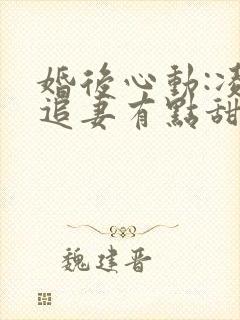 婚後心動:凌
追妻有點甜
魏建晋